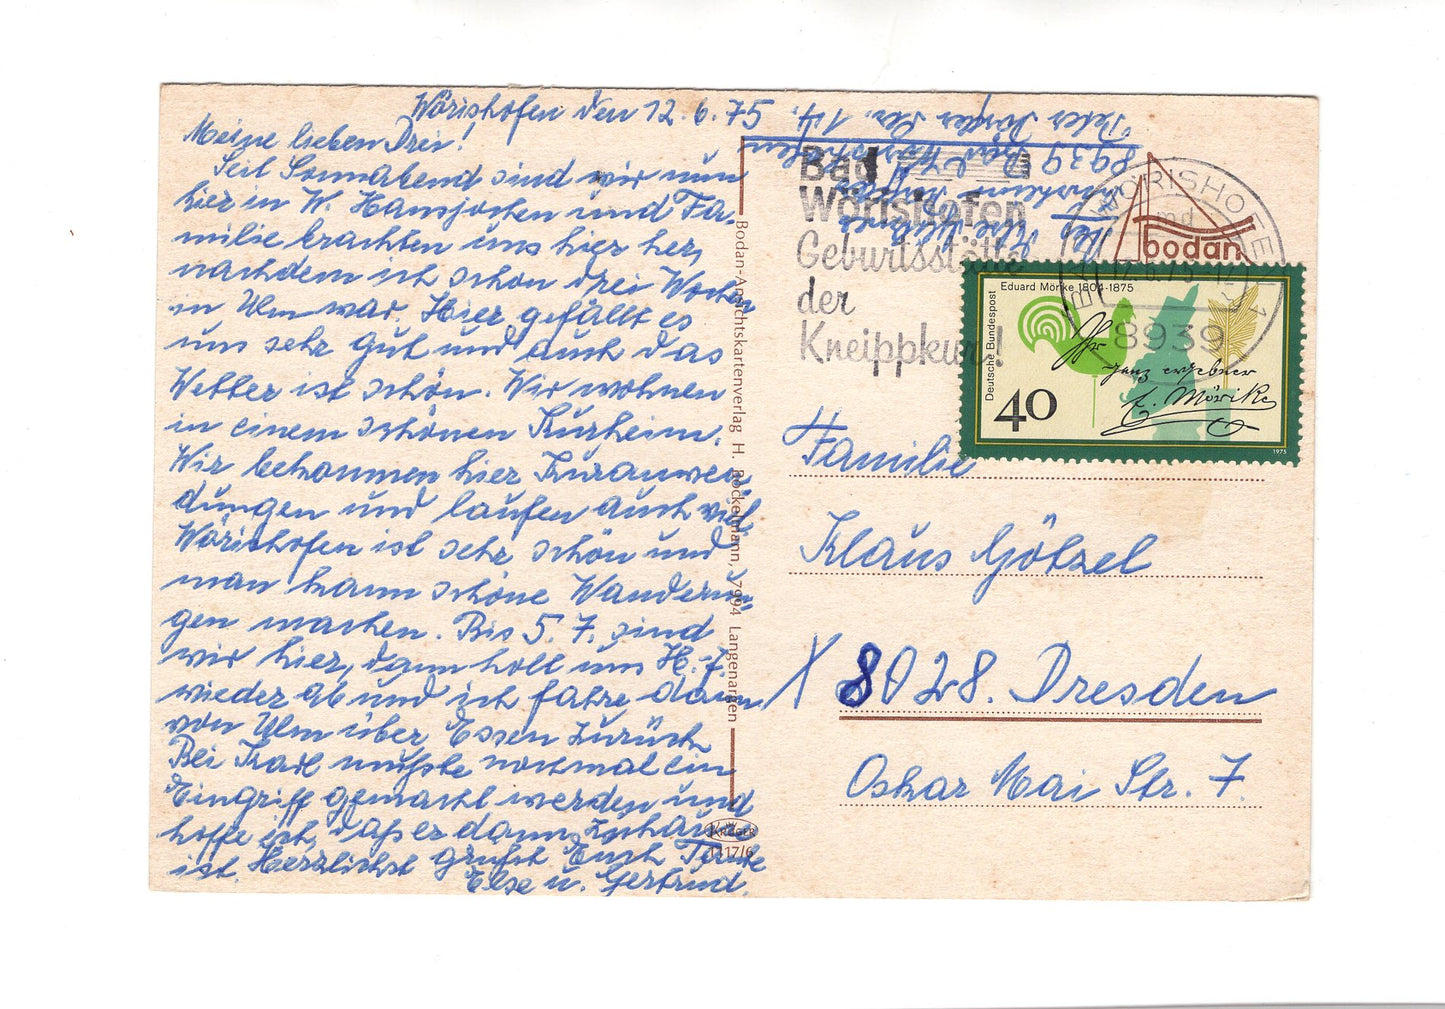 Wörishofen den 12. 6. 75
Meine lieben Drei!
Seit Sonnabend sind wir nun
hier in W. Hansjochen und Fa-
milie brachten uns hier her,
nachdem ich schon drei Wochen
in Ulm war. Hier gefällt es
uns sehr gut und auch das
Wetter ist schön. Wir wohnen
in einem schönen Kurheim.
Wir bekommen hier Kuranwen
dungen und laufen auch viel.
Wörishofen ist sehr schön und
man kann schöne Wanderun
gen machen. Bis 5. 7. sind
wir hier, dann holt uns H.-J.
wieder ab und ich fahre dann
von Ulm über Essen zurück
Bei Karl mußte nochmal ein
Eingriff gemacht werden und
hoffe ich, daß er dann zuhause
ist. Herzlichst grüßt Euch Tante
Else u. Gertrud.
Bodan-Ansichtskartenverlag H. Rockelmann, 7994 Langenargen
KRÜGER
1117/6
8939 Bad Wörishofen
Str. 14.
Bad
Wörishofen
Geburtsstätte
der
Kneippkur!
WÖRISHOFEN
md
12.6.75-14
8939
bodan
Eduard Mörike 1804-1875
Deutsche Bundespost
40
ganz ergebner
E. Mörike
1975
Familie
Klaus Götzel
X 8028. Dresden
Oskar Mai Str. 7.